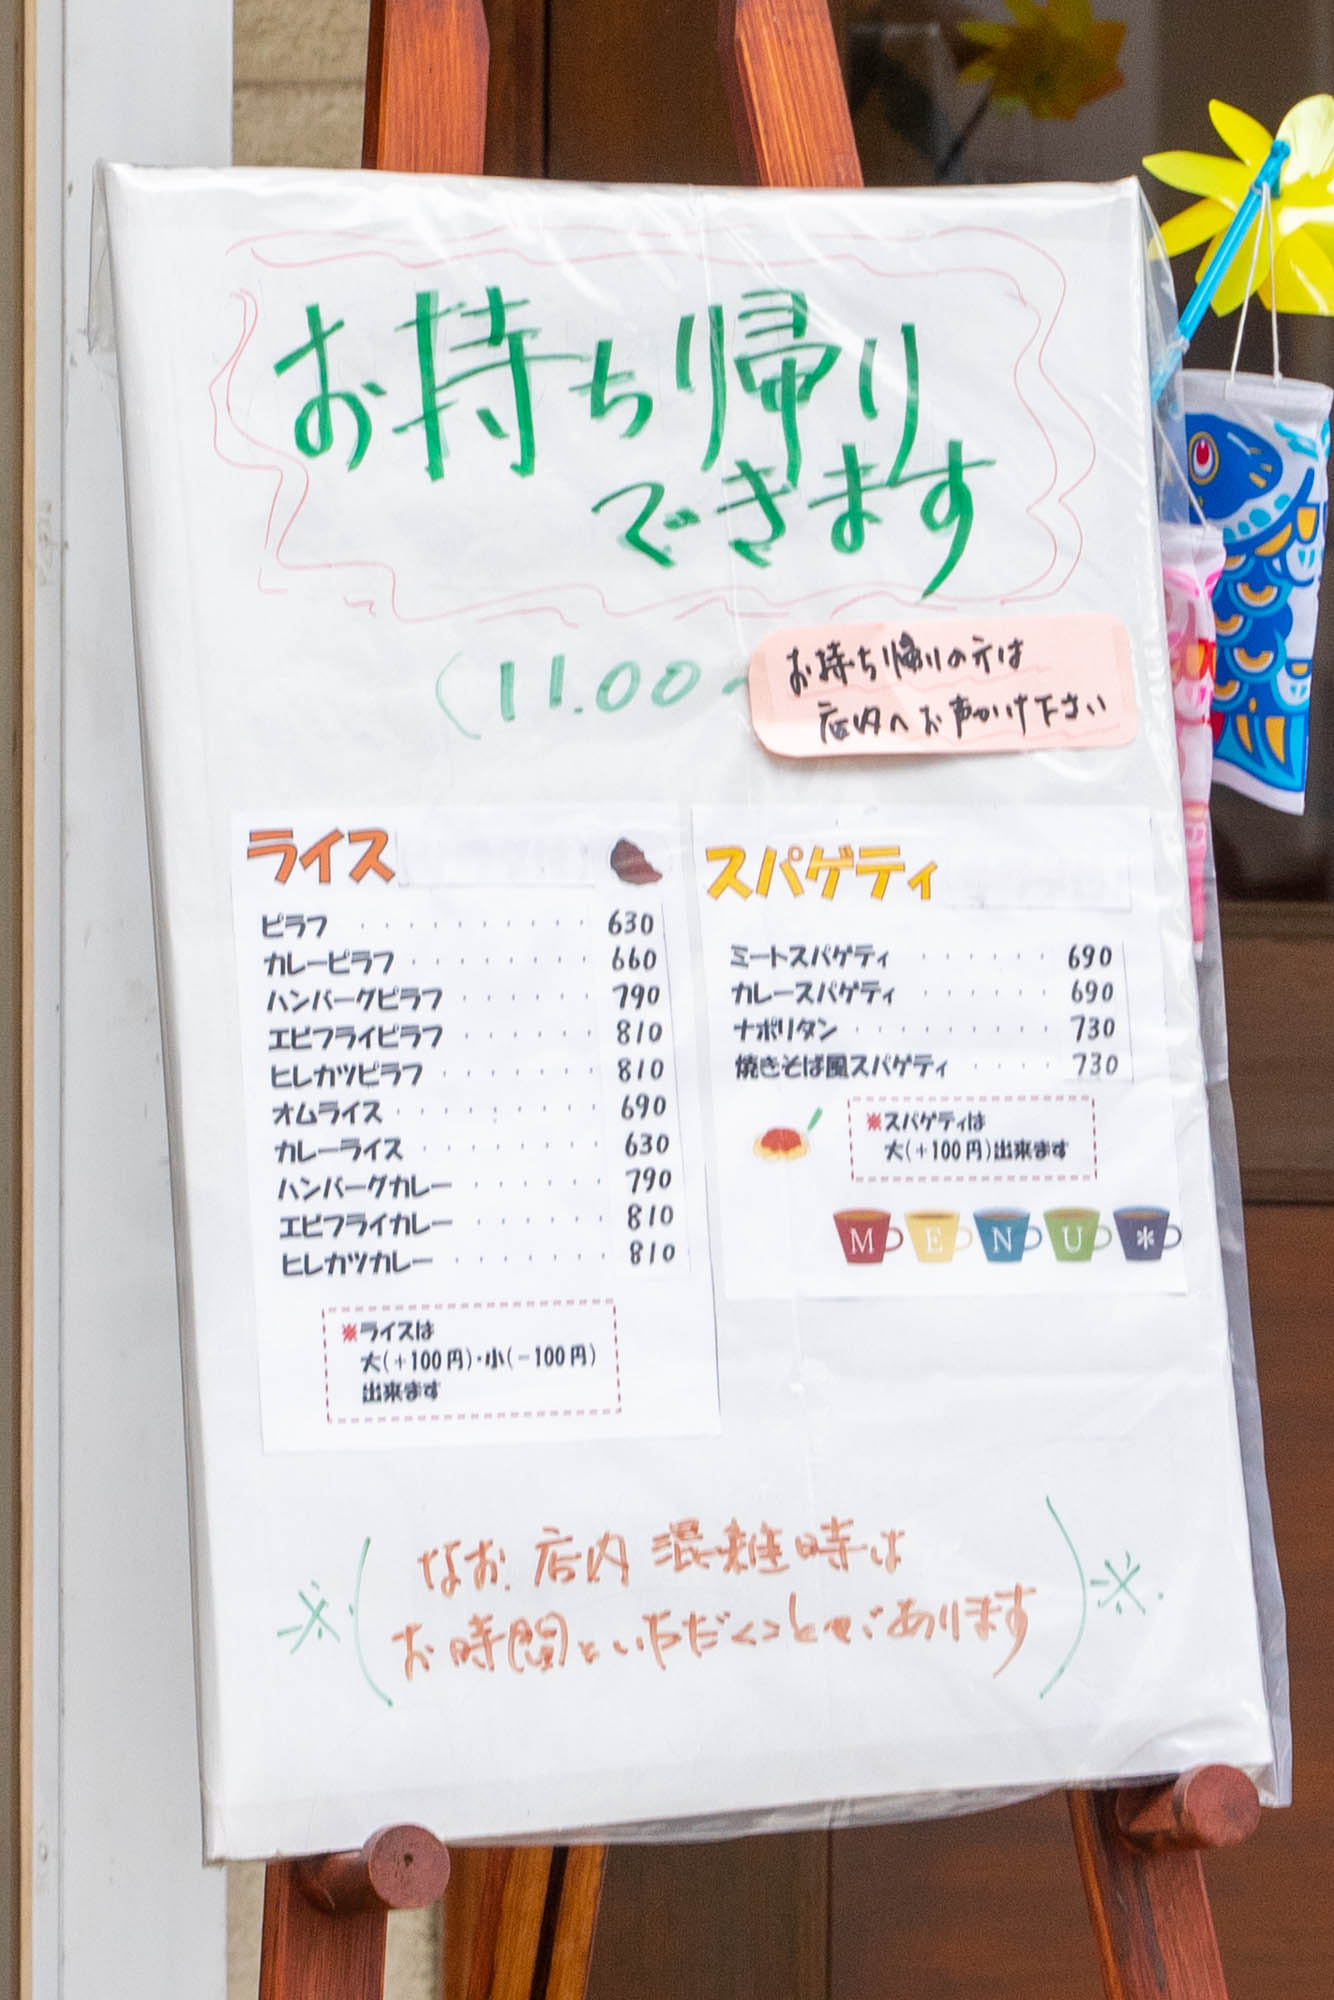 お持ち帰り
できます
(11.00~
お持ち帰りの方は
店内へお声かけ下さい
ライス
ピラフ ・・・・・・・・・・ 630
カレーピラフ ・・・・・・・・ 660
ハンバーグピラフ ・・・・・・ 790
エビフライピラフ ・・・・・・ 810
ヒレカツピラフ ・・・・・・・ 810
オムライス ・・・・・・・・・ 690
カレーライス ・・・・・・・・ 630
ハンバーグカレー ・・・・・・ 790
エビフライカレー ・・・・・・ 810
ヒレカツカレー ・・・・・・・ 810
※ライスは
大(+100円)・小(-100円)
出来ます
スパゲティ
ミートスパゲティ ・・・・・・ 690
カレースパゲティ ・・・・・・ 690
ナポリタン ・・・・・・・・・ 730
焼きそば風スパゲティ ・・・・ 730
※スパゲティは
大(+100円)出来ます
MENU*
なお、店内混雑時は
※(お時間をいただくこともございます)※